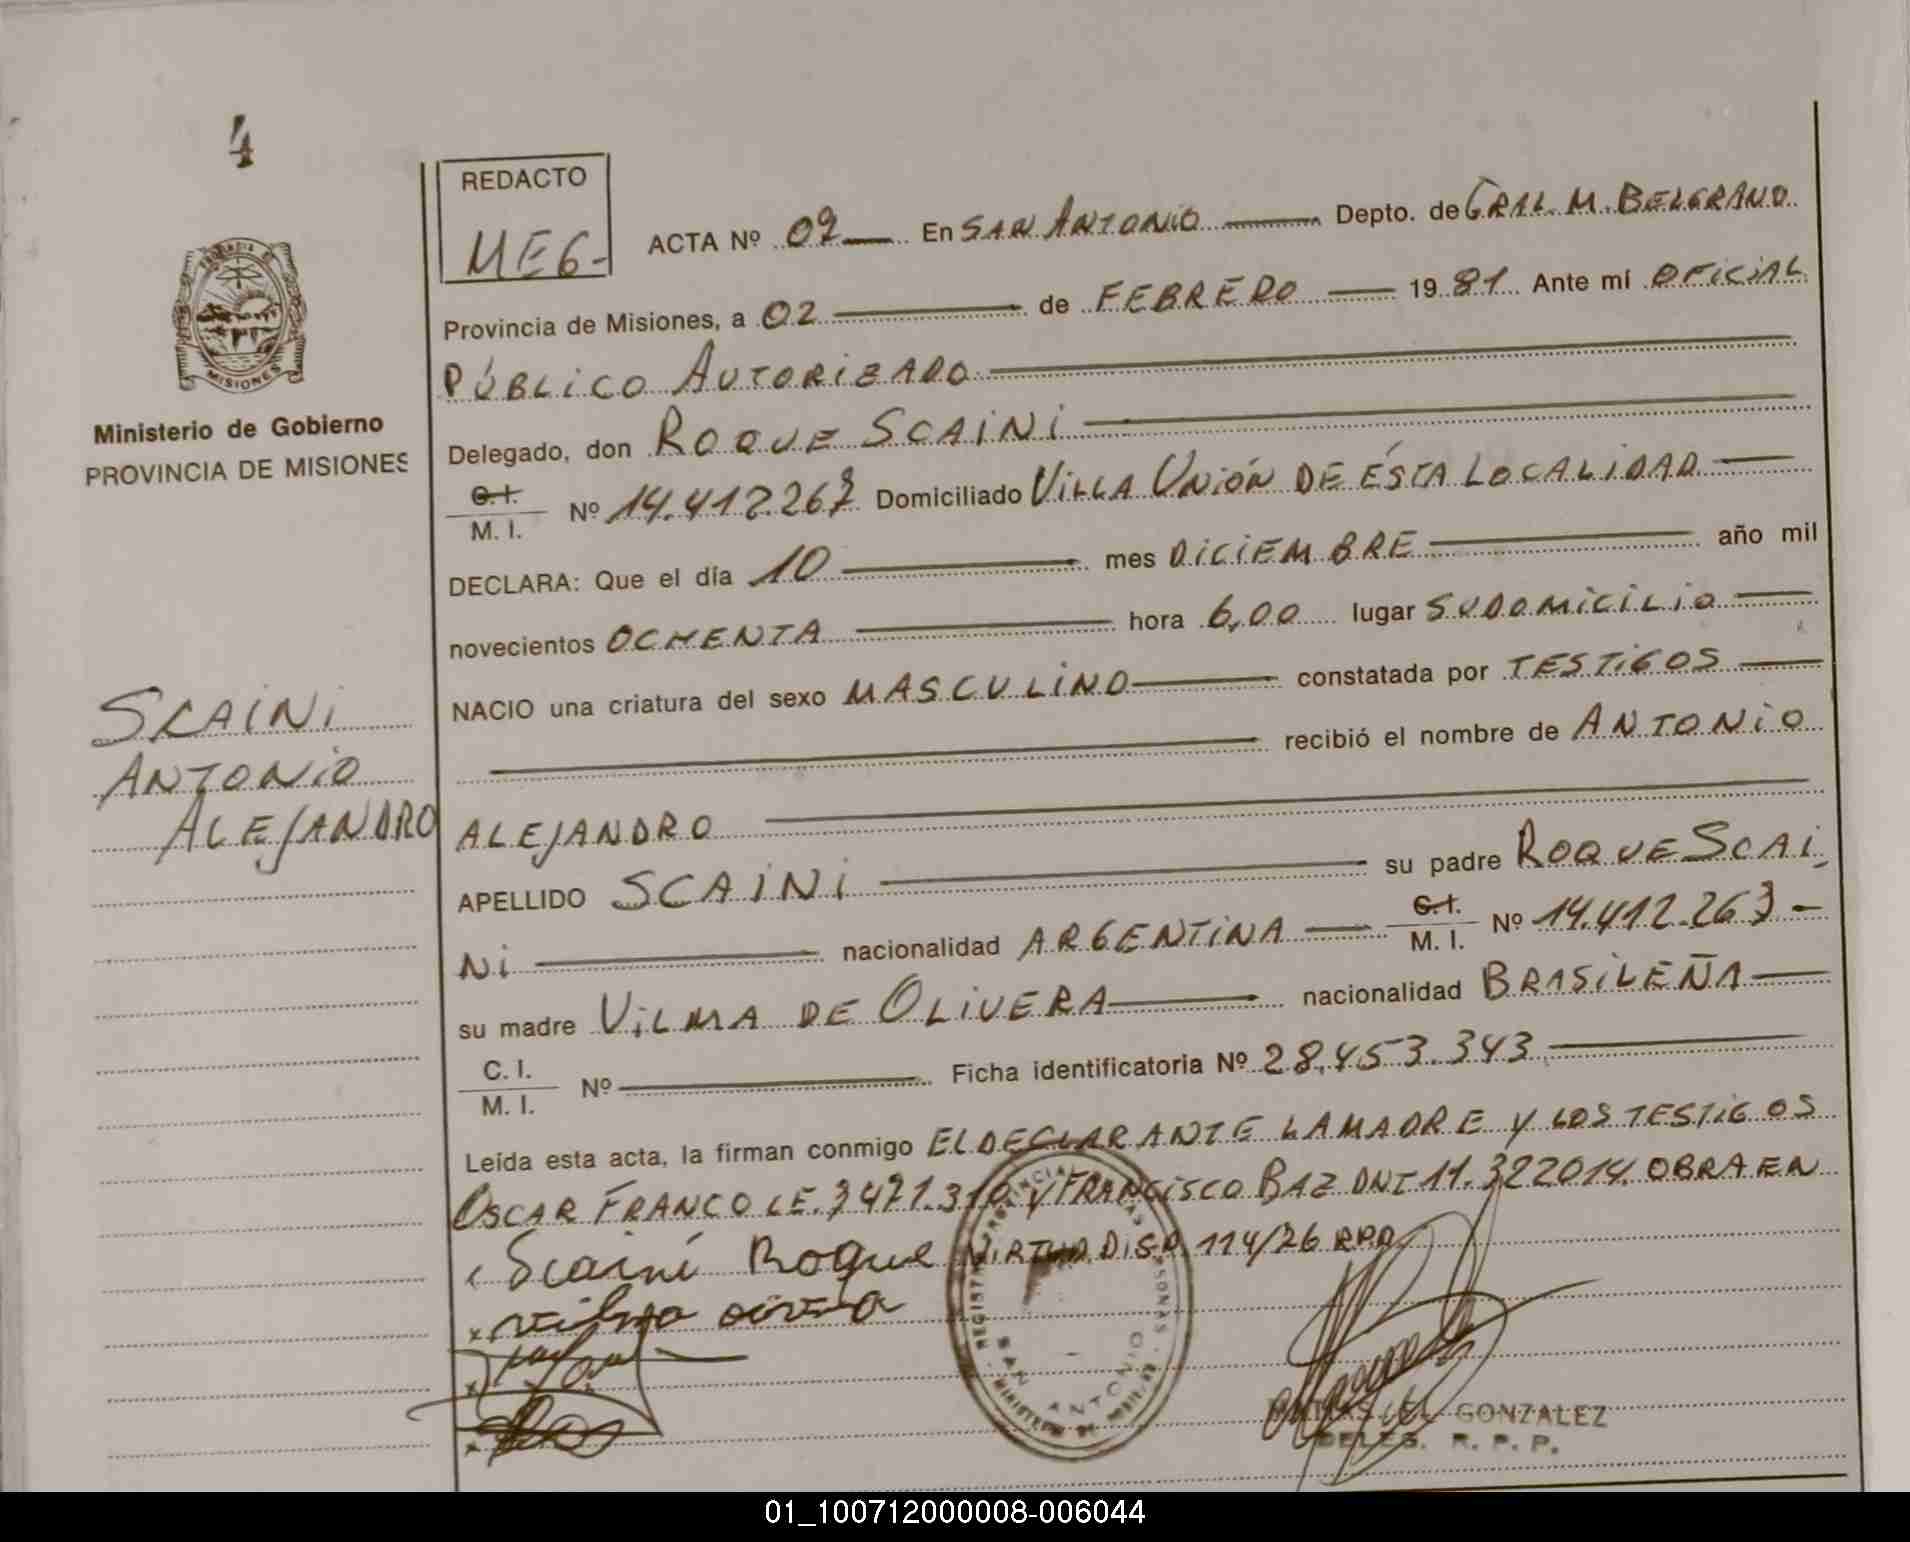 4
REDACTO
MEG-
ACTA Nº 02 En SAN ANTONIO Depto. de GRAL. M. BELGRANO
Provincia de Misiones, a 02 de FEBRERO 1981 Ante mí OFICIAL
PÚBLICO AUTORIZADO
Ministerio de Gobierno
PROVINCIA DE MISIONES
Delegado, don ROQUE SCAINI
C.I.
M. I. Nº 14.412.263 Domiciliado VILLA UNIÓN DE ÉSTA LOCALIDAD
DECLARA: Que el día 10 mes DICIEMBRE año mil
novecientos OCHENTA hora 6,00 lugar SU DOMICILIO
NACIO una criatura del sexo MASCULINO constatada por TESTIGOS
recibió el nombre de ANTONIO
ALEJANDRO
SCAINI
ANTONIO
ALEJANDRO
APELLIDO SCAINI su padre ROQUE SCAI
NI nacionalidad ARGENTINA C.I. M. I. Nº 14.412.263-
su madre VILMA DE OLIVERA nacionalidad BRASILEÑA
C. I.
M. I. Nº Ficha identificatoria Nº 28.453.343
Leída esta acta, la firman conmigo EL DECLARANTE LA MADRE Y LOS TESTIGOS
OSCAR FRANCO LE. 3471.310 Y FRANCISCO BAZ DNI 11.322014. OBRA EN
Scaini Roque VIRTUD DISP. 114/76 RPP.
SAN ANTONIO
GONZALEZ
DELEG. R. P. P.
01_100712000008-006044